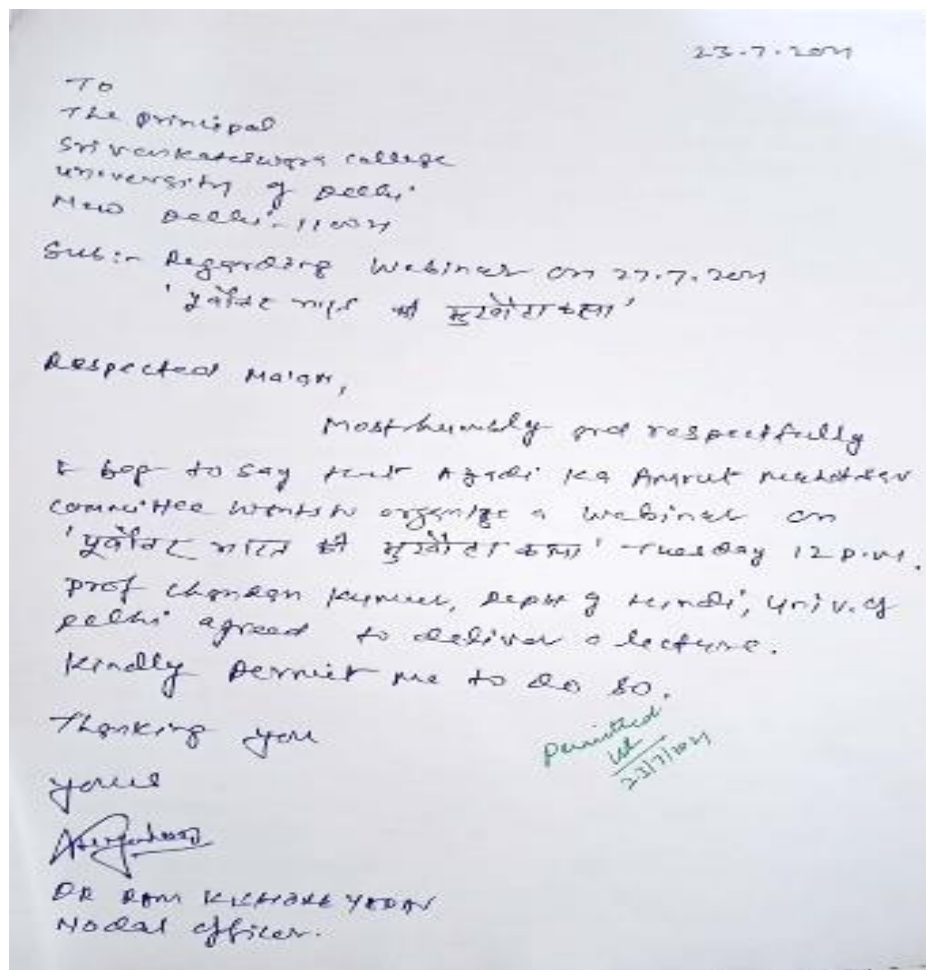 23.7.2021
To
The principal
Sri venkateswara college
university of Delhi
New Delhi-110021
Sub:- Regarding Webinar on 27.7.2021
'पूर्वोत्तर भारत की मुखौटा कला'
Respected Ma'am,
Most humbly and respectfully
I beg to say that Azadi ka Amrut Mahotsav
committee wants to organize a webinar on
'पूर्वोत्तर भारत की मुखौटा कला' Tuesday 12 p.m.
Prof Chandan Kumar, Deptt of Hindi, Univ. of
Delhi agreed to deliver a lecture.
Kindly permit me to do so.
Thanking you
Permitted
23/7/2021
yours
DR RAM KISHORE YADAV
Nodal officer.